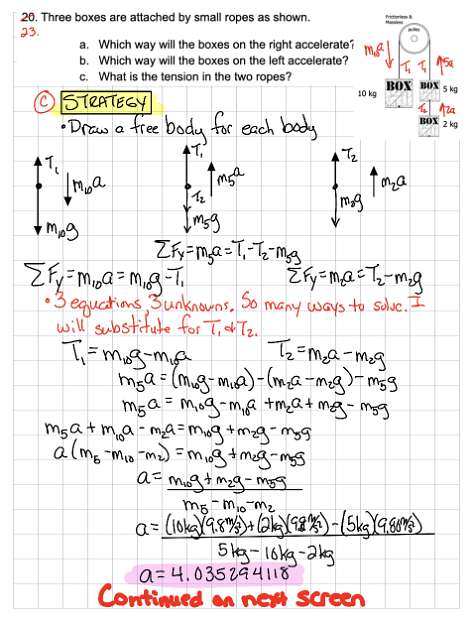 20. Three boxes are attached by small ropes as shown.
23.
a. Which way will the boxes on the right accelerate?
b. Which way will the boxes on the left accelerate?
c. What is the tension in the two ropes?
Frictionless &
Massless
pulley
m₁₀a T₁ T₁ 5a
10 kg BOX BOX 5 kg
T₂ 2a
BOX 2 kg
C STRATEGY
• Draw a free body for each body
T₁ m₁₀a m₁₀g
T₁ m₅a T₂ m₅g
T₂ m₂a m₂g
ΣFy = m₅a = T₁ - T₂ - m₅g
ΣFy = m₁₀a = m₁₀g - T₁ ΣFy = m₂a = T₂ - m₂g
• 3 equations, 3 unknowns. So many ways to solve. I
will substitute for T₁ & T₂.
T₁ = m₁₀g - m₁₀a T₂ = m₂a - m₂g
m₅a = (m₁₀g - m₁₀a) - (m₂a - m₂g) - m₅g
m₅a = m₁₀g - m₁₀a + m₂a + m₂g - m₅g
m₅a + m₁₀a - m₂a = m₁₀g + m₂g - m₅g
a(m₅ - m₁₀ - m₂) = m₁₀g + m₂g - m₅g
a = m₁₀g + m₂g - m₅g
m₅ - m₁₀ - m₂
a = (10kg)(9.8m/s²) + (2kg)(9.8m/s²) - (5kg)(9.80m/s²)
5kg - 10kg - 2kg
a = 4.035294118
Continued on next screen